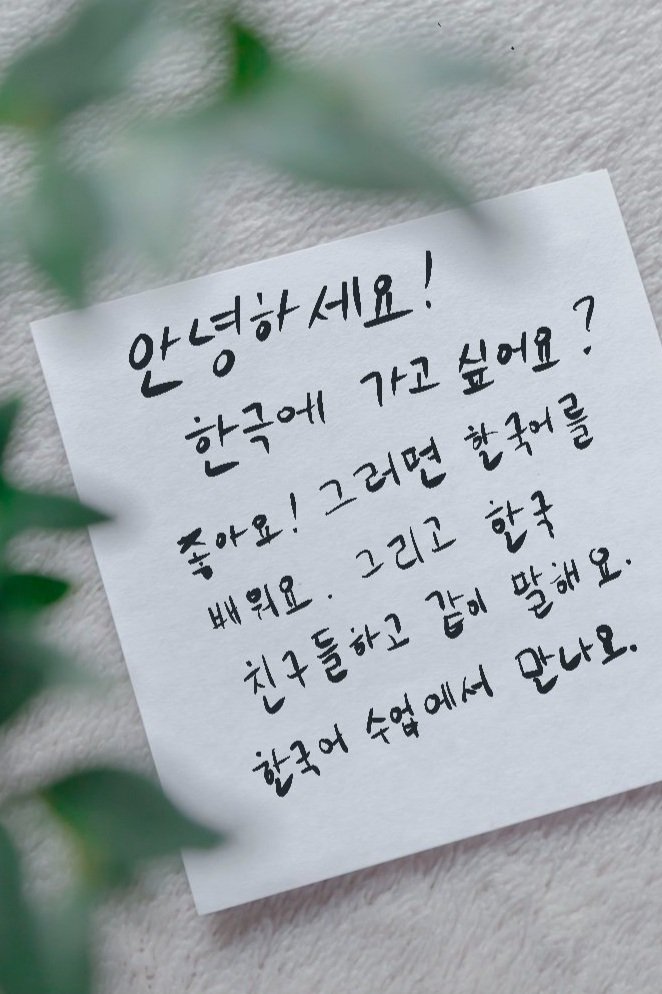 안녕하세요!
한국에 가고 싶어요?
좋아요! 그러면 한국어를
배워요. 그리고 한국
친구들하고 같이 말해요.
한국어 수업에서 만나요.